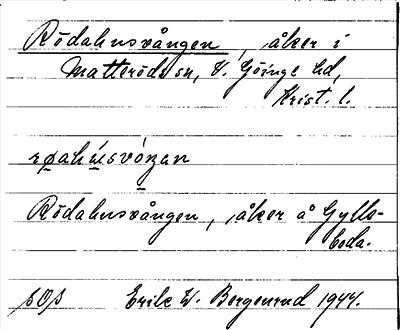 Rödahusvången, åker i
Matteröds sn, V. Göinge hd,
Krist. l.
Rödahusvången, åker å Gylls-
boda.
Erik W. Bergenrud 1944.